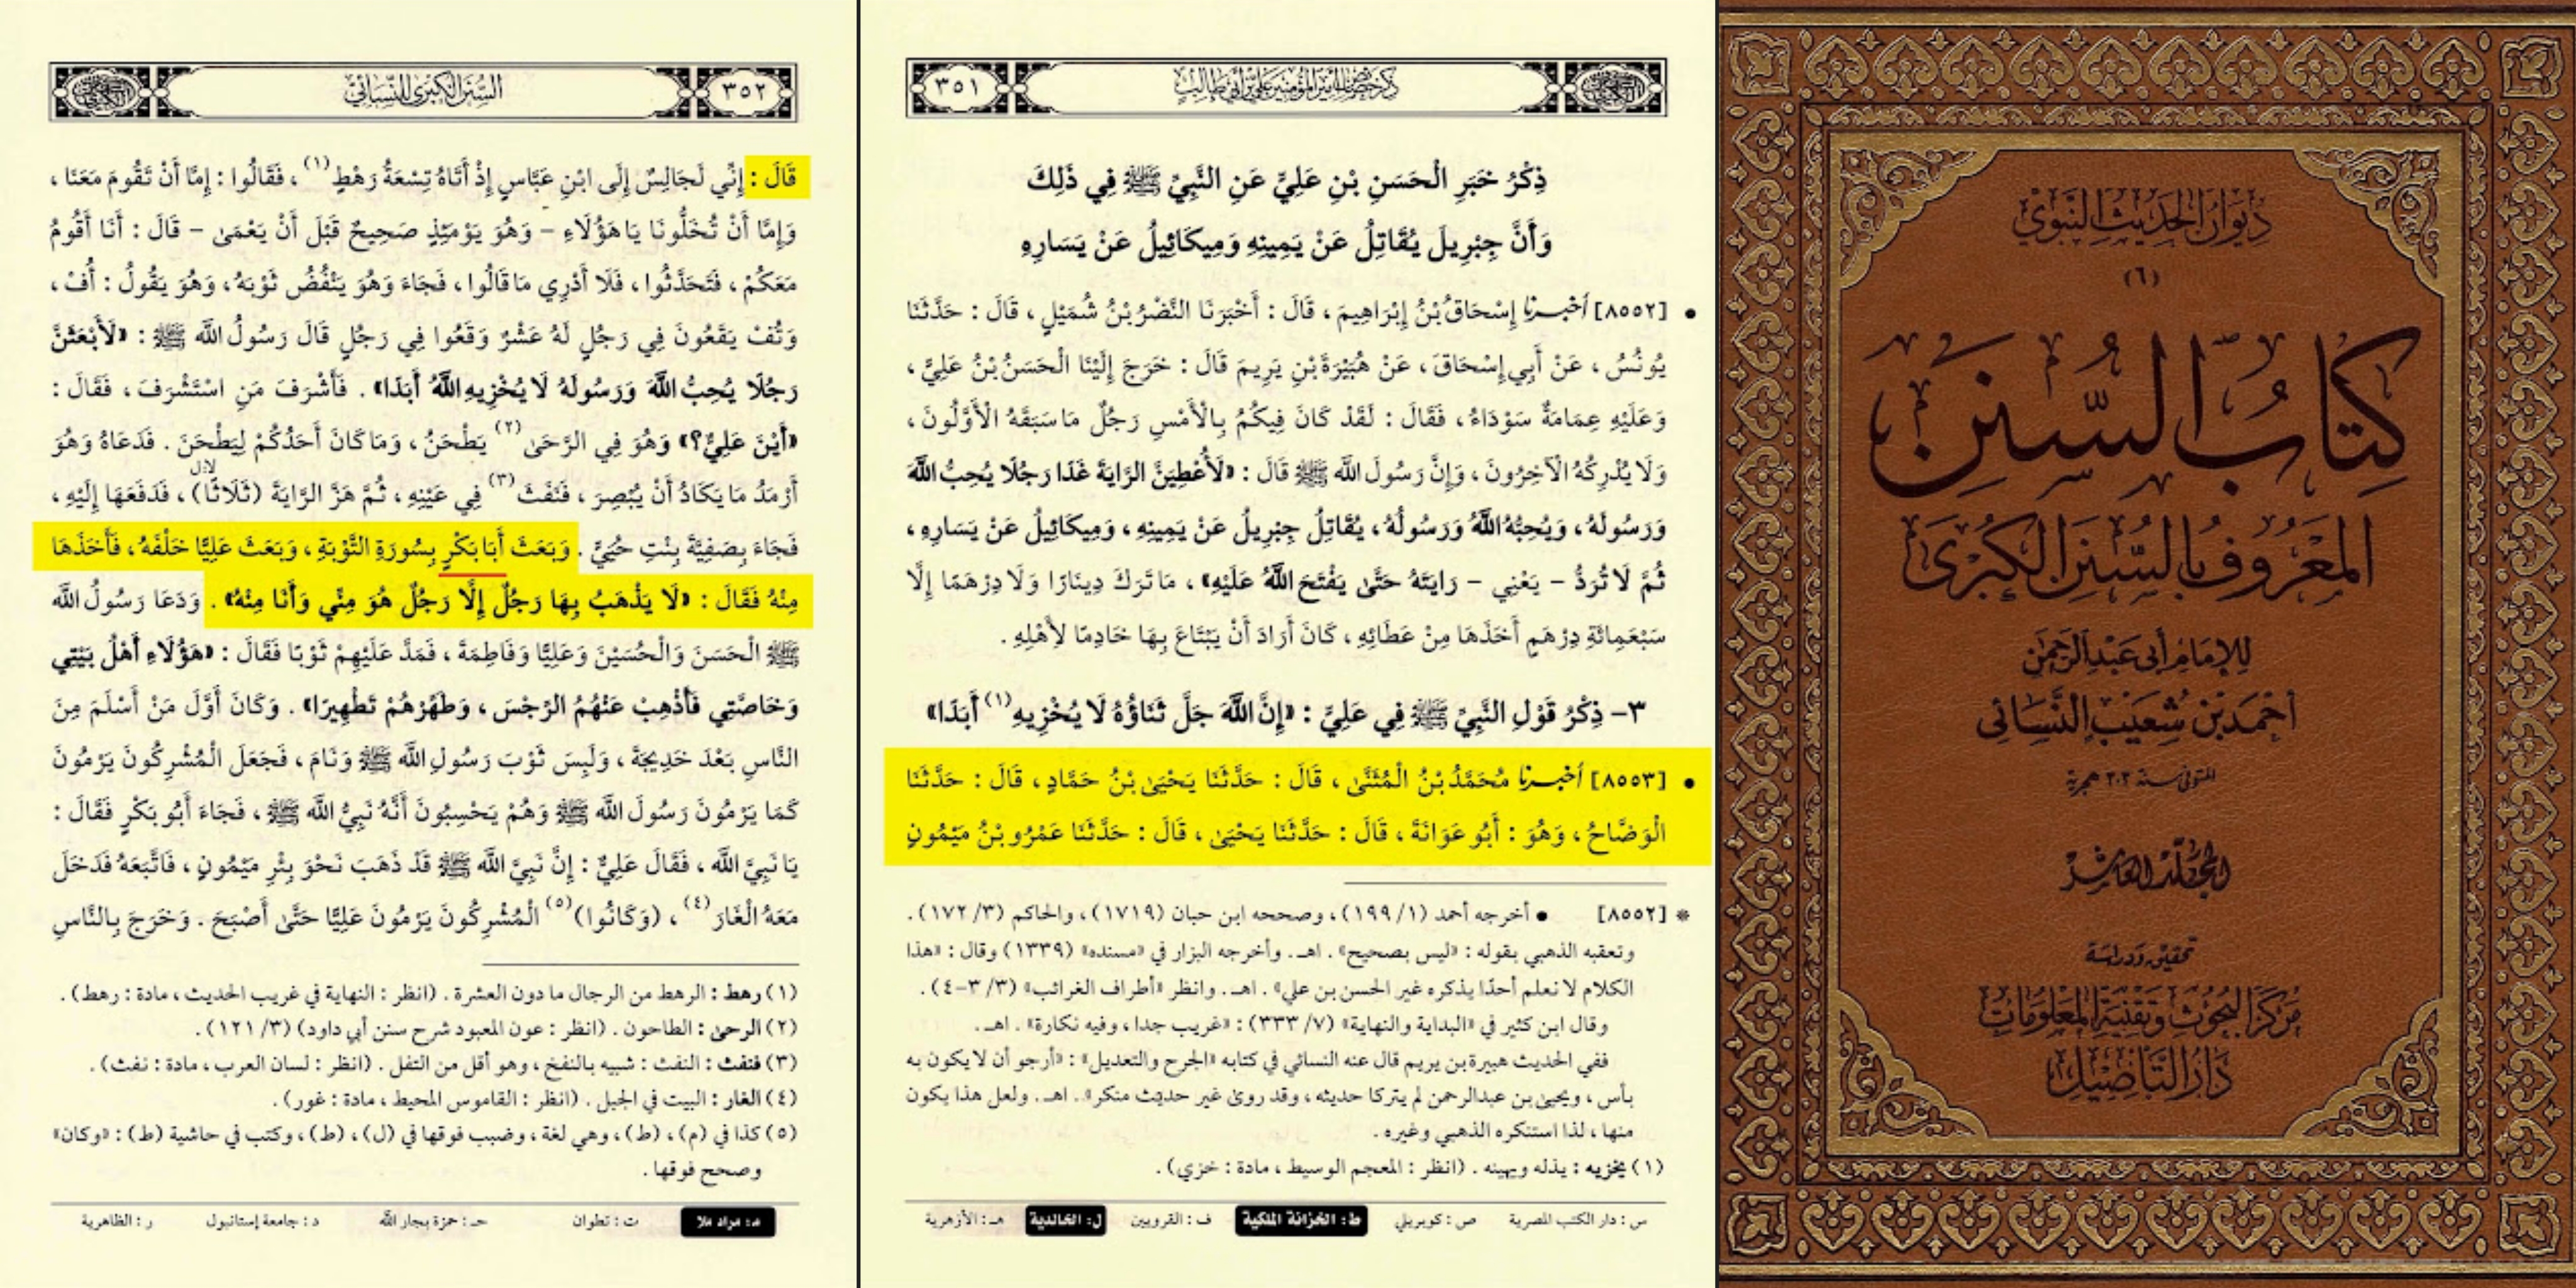 ديوان الحديث النبوي
(٦)
كتاب السنن
المعروف بالسنن الكبرى
للإمام أبي عبد الرحمن
أحمد بن شعيب النسائي
المتوفى سنة ٣٠٣ هجرية
المجلد العاشر
تحقيق ودراسة
مركز البحوث وتقنية المعلومات
دار التأصيل
ذكر خصائص أمير المؤمنين علي بن أبي طالب
٣٥١
ذِكْرُ خَبَرِ الْحَسَنِ بْنِ عَلِيٍّ عَنِ النَّبِيِّ ﷺ فِي ذَلِكَ
وَأَنَّ جِبْرِيلَ يُقَاتِلُ عَنْ يَمِينِهِ وَمِيكَائِيلُ عَنْ يَسَارِهِ
• [٨٥٥٢] أخبرنا إِسْحَاقُ بْنُ إِبْرَاهِيمَ ، قَالَ : أَخْبَرَنَا النَّضْرُ بْنُ شُمَيْلٍ ، قَالَ : حَدَّثَنَا
يُونُسُ ، عَنْ أَبِي إِسْحَاقَ ، عَنْ هُبَيْرَةَ بْنِ يَرِيمَ قَالَ : خَرَجَ إِلَيْنَا الْحَسَنُ بْنُ عَلِيٍّ ،
وَعَلَيْهِ عِمَامَةٌ سَوْدَاءُ ، فَقَالَ : لَقَدْ كَانَ فِيكُمْ بِالْأَمْسِ رَجُلٌ مَا سَبَقَهُ الْأَوَّلُونَ ،
وَلَا يُدْرِكُهُ الْآخِرُونَ ، وَإِنَّ رَسُولَ الله ﷺ قَالَ : «لَأُعْطِيَنَّ الرَّايَةَ غَدًا رَجُلًا يُحِبُّ اللَّهَ
وَرَسُولَهُ ، وَيُحِبُّهُ اللَّهُ وَرَسُولُهُ ، يُقَاتِلُ جِبْرِيلُ عَنْ يَمِينِهِ ، وَمِيكَائِيلُ عَنْ يَسَارِهِ ،
ثُمَّ لَا تُرَدُّ - يَعْنِي - رَايَتُهُ حَتَّى يَفْتَحَ اللَّهُ عَلَيْهِ» ، مَا تَرَكَ دِينَارًا وَلَا دِرْهَمًا إِلَّا
سَبْعَمِائَةِ دِرْهَمٍ أَخَذَهَا مِنْ عَطَائِهِ ، كَانَ أَرَادَ أَنْ يَبْتَاعَ بِهَا خَادِمًا لِأَهْلِهِ .
٣- ذِكْرُ قَوْلِ النَّبِيِّ ﷺ فِي عَلِيٍّ : «إِنَّ اللَّهَ جَلَّ ثَنَاؤُهُ لَا يُخْزِيهِ(١) أَبَدًا»
• [٨٥٥٣] أخبرنا مُحَمَّدُ بْنُ الْمُثَنَّى ، قَالَ : حَدَّثَنَا يَحْيَى بْنُ حَمَّادٍ ، قَالَ : حَدَّثَنَا
الْوَضَّاحُ ، وَهُوَ : أَبُو عَوَانَةَ ، قَالَ : حَدَّثَنَا يَحْيَى ، قَالَ : حَدَّثَنَا عَمْرُو بْنُ مَيْمُونٍ
* [٨٥٥٢] • أخرجه أحمد (١/ ١٩٩) ، وصححه ابن حبان (١٧١٩) ، والحاكم (٣/ ١٧٢) .
وتعقبه الذهبي بقوله : «ليس بصحيح» . اهـ . وأخرجه البزار في «مسنده» (١٣٣٩) وقال : «هذا
الكلام لا نعلم أحدًا يذكره غير الحسن بن علي» . اهـ . وانظر «أطراف الغرائب» (٣/ ٣-٤) .
وقال ابن كثير في «البداية والنهاية» (٧/ ٣٣٣) : «غريب جدا ، وفيه نكارة» . اهـ .
ففي الحديث هبيرة بن يريم قال عنه النسائي في كتابه «الجرح والتعديل» : «أرجو أن لا يكون به
بأس ، ويحيى بن عبدالرحمن لم يتركا حديثه ، وقد روى غير حديث منكر» . اهـ . ولعل هذا يكون
منها ، لذا استنكره الذهبي وغيره .
(١) يخزيه : يذله ويهينه . (انظر : المعجم الوسيط ، مادة : خزي) .
س : دار الكتب المصرية ص : كوبريلي ط : الخزانة الملكية ف : القرويين ل : الخالدية هـ : الأزهرية
٣٥٢
السنن الكبرى للنسائي
قَالَ : إِنِّي لَجَالِسٌ إِلَى ابْنِ عَبَّاسٍ إِذْ أَتَاهُ تِسْعَةُ رَهْطٍ(١) ، فَقَالُوا : إِمَّا أَنْ تَقُومَ مَعَنَا ،
وَإِمَّا أَنْ تُخَلُّونَا يَا هَؤُلَاءِ - وَهُوَ يَوْمَئِذٍ صَحِيحٌ قَبْلَ أَنْ يَعْمَى - قَالَ : أَنَا أَقُومُ
مَعَكُمْ ، فَتَحَدَّثُوا ، فَلَا أَدْرِي مَا قَالُوا ، فَجَاءَ وَهُوَ يَنْفُضُ ثَوْبَهُ ، وَهُوَ يَقُولُ : أُفْ ،
وَتُفْ يَقَعُونَ فِي رَجُلٍ لَهُ عَشْرٌ وَقَعُوا فِي رَجُلٍ قَالَ رَسُولُ الله ﷺ : «لَأَبْعَثَنَّ
رَجُلًا يُحِبُّ اللَّهَ وَرَسُولَهُ لَا يُخْزِيهِ اللَّهُ أَبَدًا» . فَأَشْرَفَ مَنِ اسْتَشْرَفَ ، فَقَالَ :
«أَيْنَ عَلِيٌّ؟» وَهُوَ فِي الرَّحَى(٢) يَطْحَنُ ، وَمَا كَانَ أَحَدُكُمْ لِيَطْحَنَ . فَدَعَاهُ وَهُوَ
أَرْمَدُ مَا يَكَادُ أَنْ يُبْصِرَ ، فَنَفَثَ(٣) فِي عَيْنِهِ ، ثُمَّ هَزَّ الرَّايَةَ (ثَلَاثًا) ، فَدَفَعَهَا إِلَيْهِ ،
فَجَاءَ بِصَفِيَّةَ بِنْتِ حُيَيٍّ . وَبَعَثَ أَبَا بَكْرٍ بِسُورَةِ التَّوْبَةِ ، وَبَعَثَ عَلِيًّا خَلْفَهُ ، فَأَخَذَهَا
مِنْهُ فَقَالَ : «لَا يَذْهَبُ بِهَا رَجُلٌ إِلَّا رَجُلٌ هُوَ مِنِّي وَأَنَا مِنْهُ» . وَدَعَا رَسُولُ الله
ﷺ الْحَسَنَ وَالْحُسَيْنَ وَعَلِيًّا وَفَاطِمَةَ ، فَمَدَّ عَلَيْهِمْ ثَوْبًا فَقَالَ : «هَؤُلَاءِ أَهْلُ بَيْتِي
وَخَاصَّتِي فَأَذْهِبْ عَنْهُمُ الرِّجْسَ ، وَطَهِّرْهُمْ تَطْهِيرًا» . وَكَانَ أَوَّلَ مَنْ أَسْلَمَ مِنَ
النَّاسِ بَعْدَ خَدِيجَةَ ، وَلَبِسَ ثَوْبَ رَسُولِ الله ﷺ وَنَامَ ، فَجَعَلَ الْمُشْرِكُونَ يَرْمُونَ
كَمَا يَرْمُونَ رَسُولَ الله ﷺ وَهُمْ يَحْسِبُونَ أَنَّهُ نَبِيُّ الله ﷺ ، فَجَاءَ أَبُو بَكْرٍ فَقَالَ :
يَا نَبِيَّ الله ، فَقَالَ عَلِيٌّ : إِنَّ نَبِيَّ الله ﷺ قَدْ ذَهَبَ نَحْوَ بِئْرِ مَيْمُونٍ ، فَاتَّبَعَهُ فَدَخَلَ
مَعَهُ الْغَارَ(٤) ، (وَكَانُوا)(٥) الْمُشْرِكُونَ يَرْمُونَ عَلِيًّا حَتَّى أَصْبَحَ . وَخَرَجَ بِالنَّاسِ
(١) رهط : الرهط من الرجال ما دون العشرة . (انظر : النهاية في غريب الحديث ، مادة : رهط) .
(٢) الرحى : الطاحون . (انظر : عون المعبود شرح سنن أبي داود) (٣/ ١٢١) .
(٣) فنفث : النفث : شبيه بالنفخ ، وهو أقل من التفل . (انظر : لسان العرب ، مادة : نفث) .
(٤) الغار : البيت في الجبل . (انظر : القاموس المحيط ، مادة : غور) .
(٥) كذا في (م) ، (ط) ، وهي لغة ، وضبب فوقها في (ل) ، (ط) ، وكتب في حاشية (ط) : «وكان»
وصحح فوقها .
م : مراد ملا ت : تطوان حـ : حمزة بجار الله د : جامعة إستانبول ر : الظاهرية